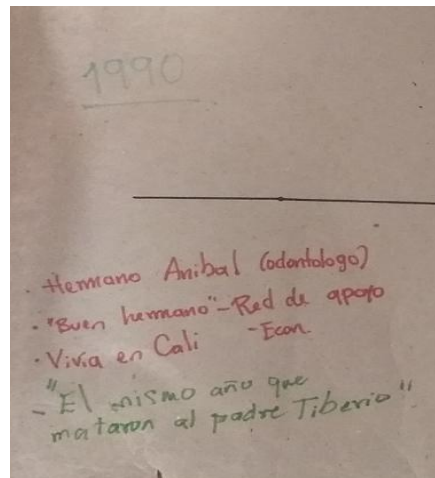 1990
· Hermano Anibal (odontologo)
· "Buen hermano" - Red de apoyo
· Vivia en Cali - Econ
- "El mismo año que
mataron al padre Tiberio"